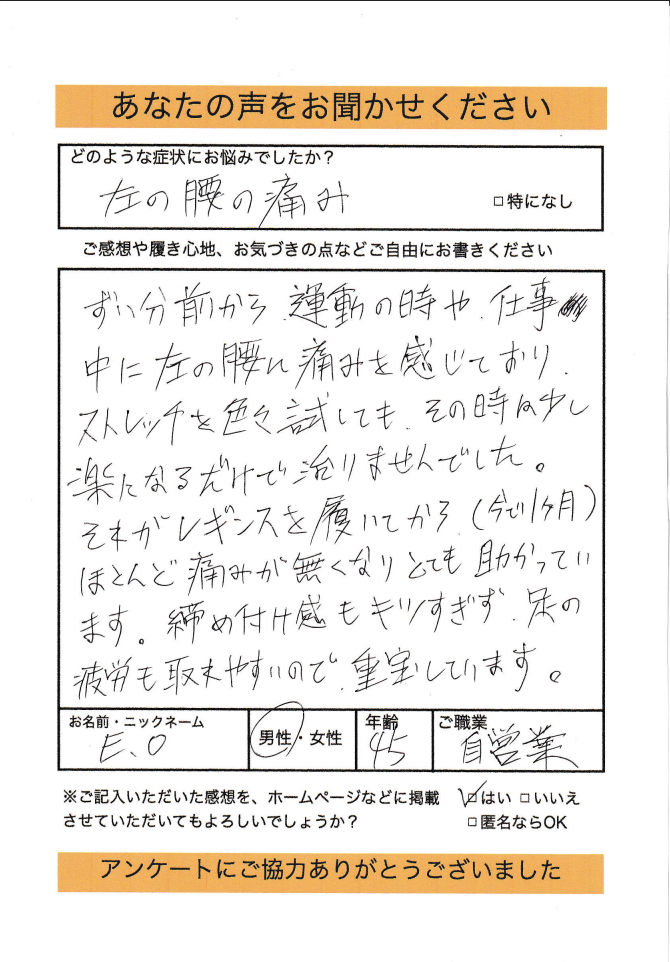 あなたの声をお聞かせください
どのような症状にお悩みでしたか？
左の腰の痛み
□特になし
ご感想や履き心地、お気づきの点などご自由にお書きください
ずい分前から、運動の時や、仕事
中に左の腰に痛みを感じており、
ストレッチを色々試しても、その時は少し
楽になるだけで治りませんでした。
それがレギンスを履いてから（今で1ヶ月）
ほとんど痛みが無くなりとても助かってい
ます。締め付け感もキツすぎず、足の
疲労も取れやすいので、重宝しています。
お名前・ニックネーム
E.O
男性・女性
年齢
45
ご職業
自営業
※ご記入いただいた感想を、ホームページなどに掲載
させていただいてもよろしいでしょうか？
☑はい □いいえ
□匿名ならOK
アンケートにご協力ありがとうございました